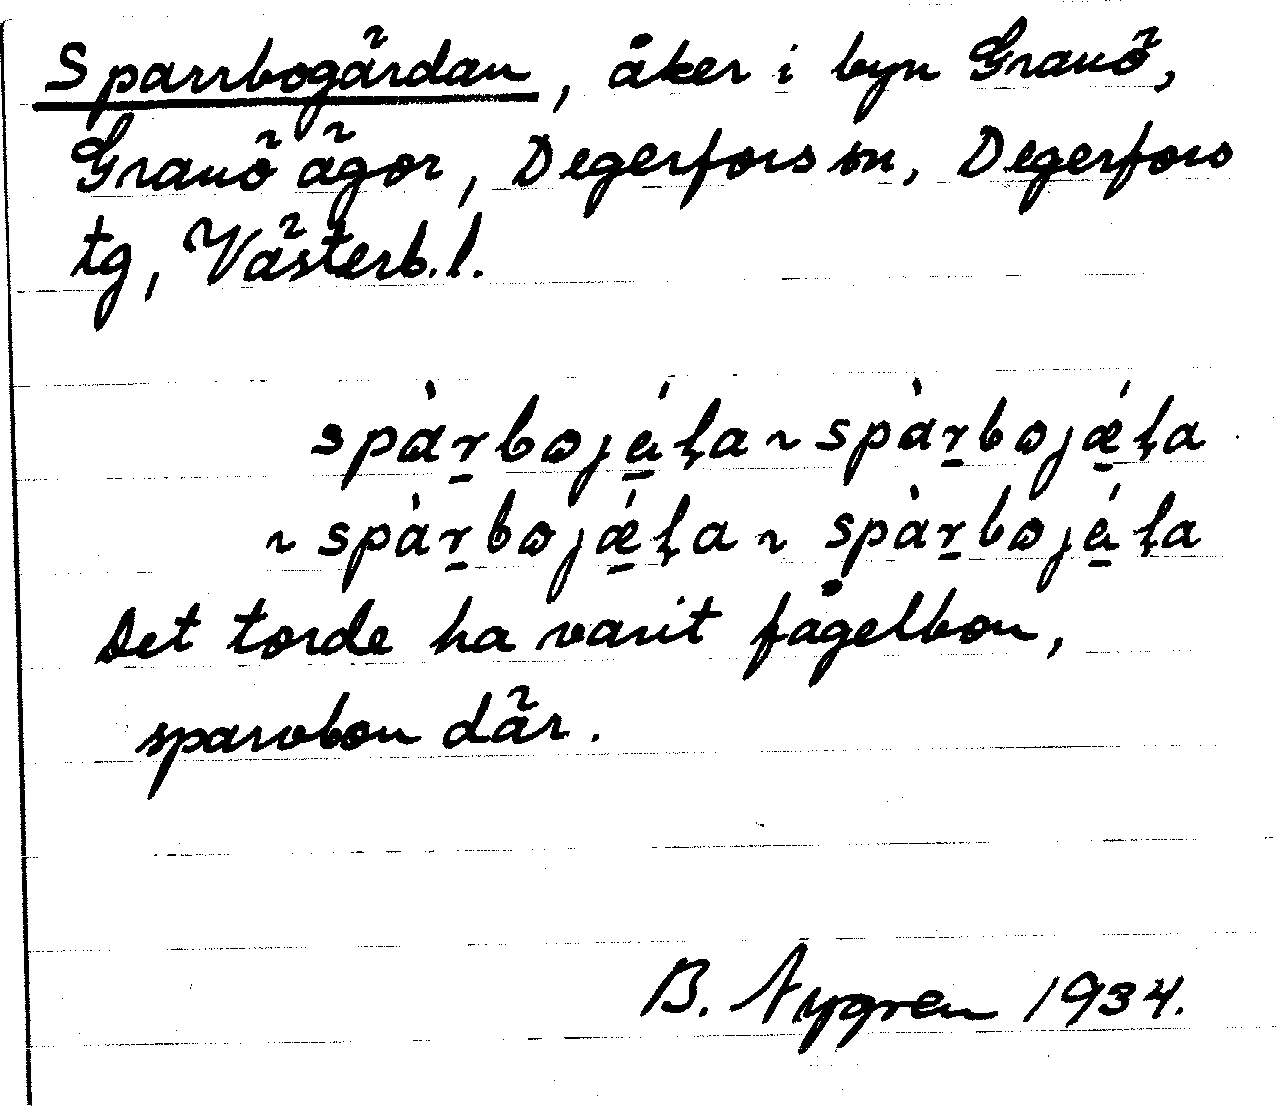 Sparrbogärdan, åker i byn Granö,
Granö ägor, Degerfors sn, Degerfors
tg, Västerb.l.
spàr̲bojá̲ƪa ~ spàr̲bojǽ̲ƪa
~ spàr̲bojǽ̲ƪa ~ spàr̲bojá̲ƪa
Det torde ha varit fågelbon,
sparvbon där.
B. Nygren 1934.